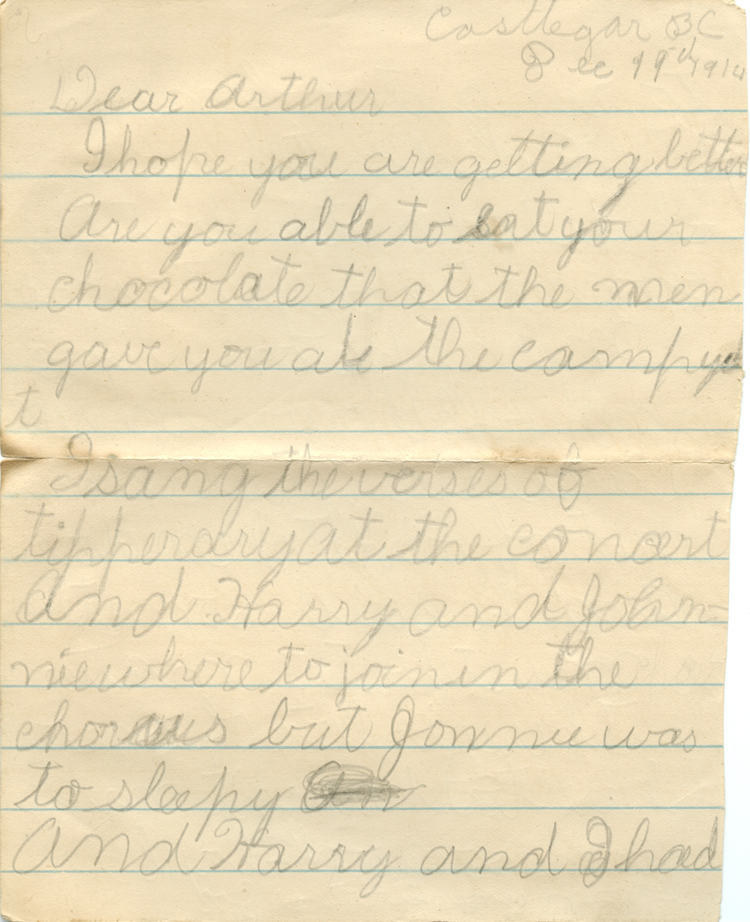 Castlegar BC
Dec 19th 1914
Dear Arthur
I hope you are getting better
Are you able to eat your
chocolate that the men
gave you at the camp ye
t
I sang the verses of
tipperary at the concert
And Harry and John-
niewhere to join in the
chorus but Jonnie was
to sleepy
And Harry and I had